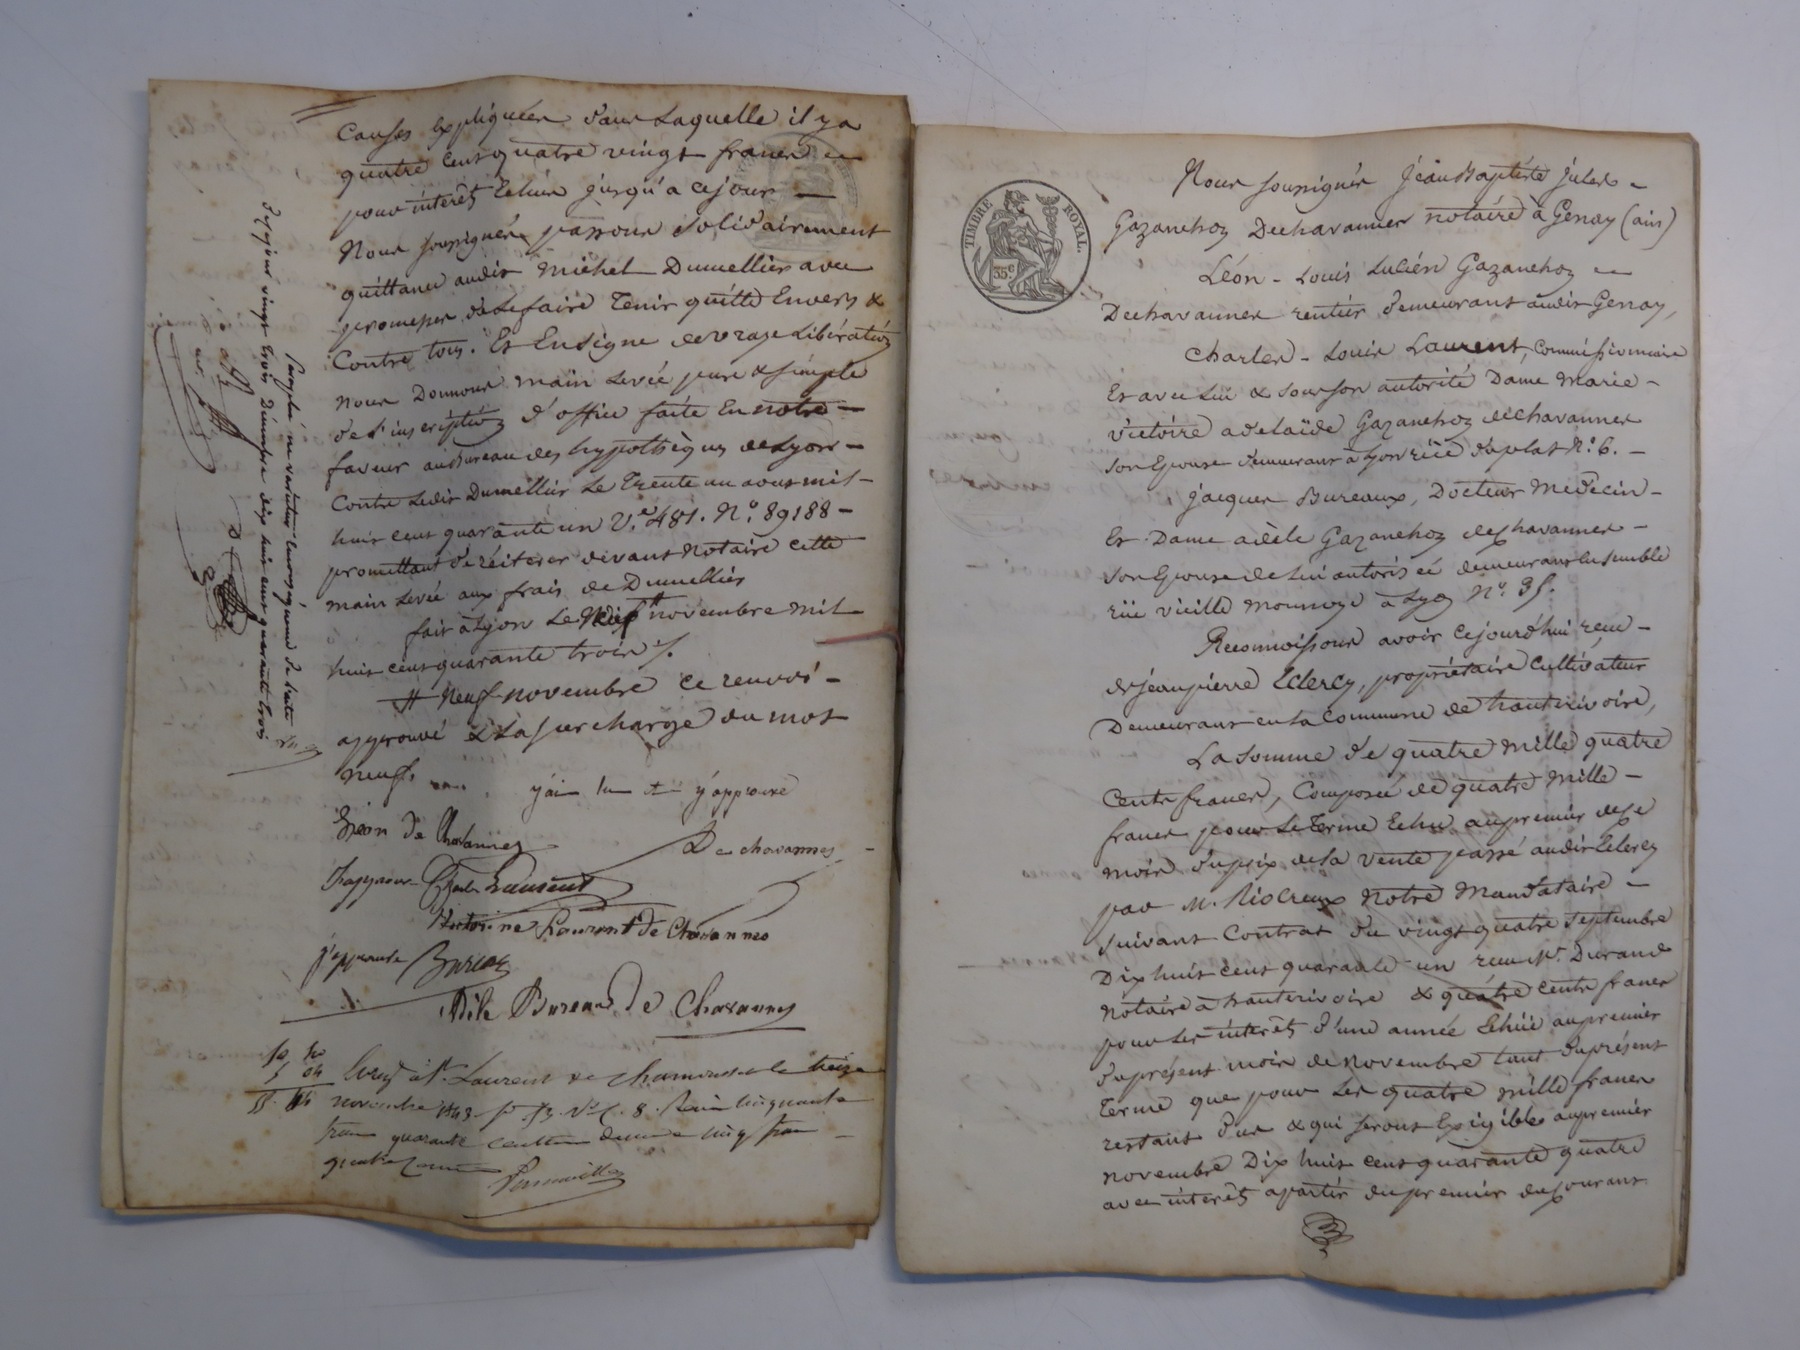 causes expliquées dans laquelle il y a
quatre cent quatre vingt francs
pour intérêt échus jusqu'a ce jour —
Nous soussignés passons solidairement
quittance audit Michel Dumellier avec
promesse de le faire tenir quitte Envers &
contre tous. Et En signe de vraie Libération
nous Donnons main levée pure & simple
de l'inscription d'office faite En notre —
faveur au Bureau des hypothèques de Lyon —
contre ledit Dumellier Le Trente un aout mil —
huit cent quarante un V.e 481. N.o 89188 —
promettant de réiterer devant Notaire cette
main levée aux frais de Dumellier
fait à Lyon Le Neuf novembre mil
huit cent quarante trois ./.
# Neuf novembre ce renvoi —
approuvé & la surcharge du mot
neuf.
j'ai lu et j'approuve
Léon de Chavannes
De chavannes
J'approuve Charles Laurent
Victorine Laurent de Chavannes
j'approuve Bureaux
Adèle Bureaux de Chavannes
Enreg à St. Laurent de chamousset le treize
novembre 1843 fo 73. Vo c. 8. Reçu cinquante
francs quarante centimes decime cinq francs
quatre centimes
Paraphé ne varietur au désir de l'acte
de ce jour vingt trois Décembre dix huit cent quarante trois
TIMBRE ROYAL.
35c
Nous soussignés Jean Baptiste Jules
Gazanchoz Dechavannes notaire à Genay (ain)
Léon - Louis Lucien Gazanchoz
Dechavannes rentier demeurant audit Genay,
Charles - Louis Laurent, Commissionnaire
Et avec lui & sous son autorité Dame Marie —
victoire adelaïde Gazanchoz dechavannes
son Epouse demeurant à Lyon rüe Duplat N.o 6. —
jacques Bureaux, Docteur Medecin —
Et Dame adèle Gazanchoz dechavannes —
son Epouse de lui autorisée demeurant ensemble
rüe vieille monnoye à Lyon N.o 35.
Reconnoissons avoir cejourd'hui reçu —
de jean pierre Eclercy, propriétaire cultivateur
Demeurant en la commune de hauterivoire,
La somme de quatre mille quatre
Cents francs, Composée de quatre mille —
francs pour le terme echu au premier de ce
mois du prix de la vente passé audit Eclercy
par M. Riocreux Notre Mandataire —
suivant contrat du vingt quatre septembre
Dix huit cent quarante un reçu Me. Durand
Notaire à hauterivoire & quatre cents francs
pour les intérêts d'une année Echüe au premier
du présent mois de novembre tant du présent
terme que pour les quatre mille francs
restant dus & qui seront Exigibles au premier
novembre Dix huit cent quarante quatre
avec intérêts apartir du premier du courant.